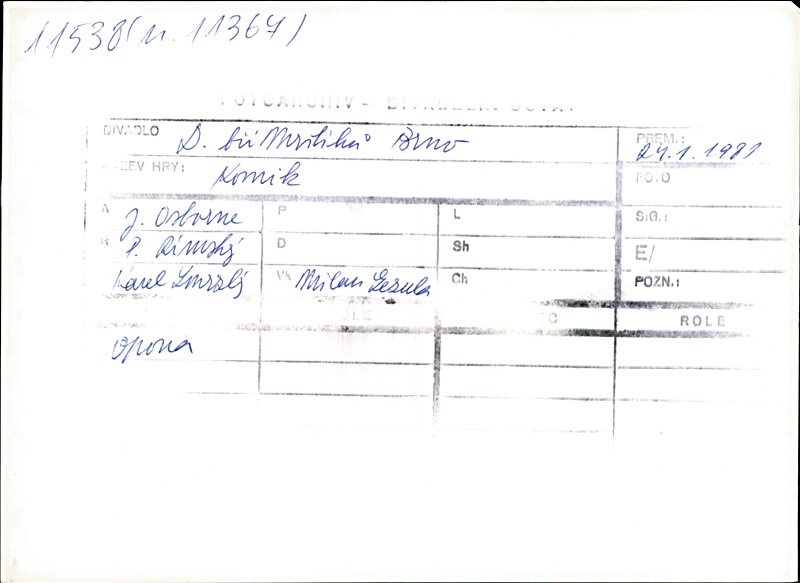 11538 (n. 11367)
FOTOARCHIV - DIVADELNÍ ÚSTAV
DIVADLO D. bří Mrštíků Brno PREM.: 24.1.1981
NÁZEV HRY: Komik FOTO
A J. Osborne P L SIG.:
R P. Rímský D Sh E/
Karel Vk Milan Zezula Ch POZN.:
ROLE
opona